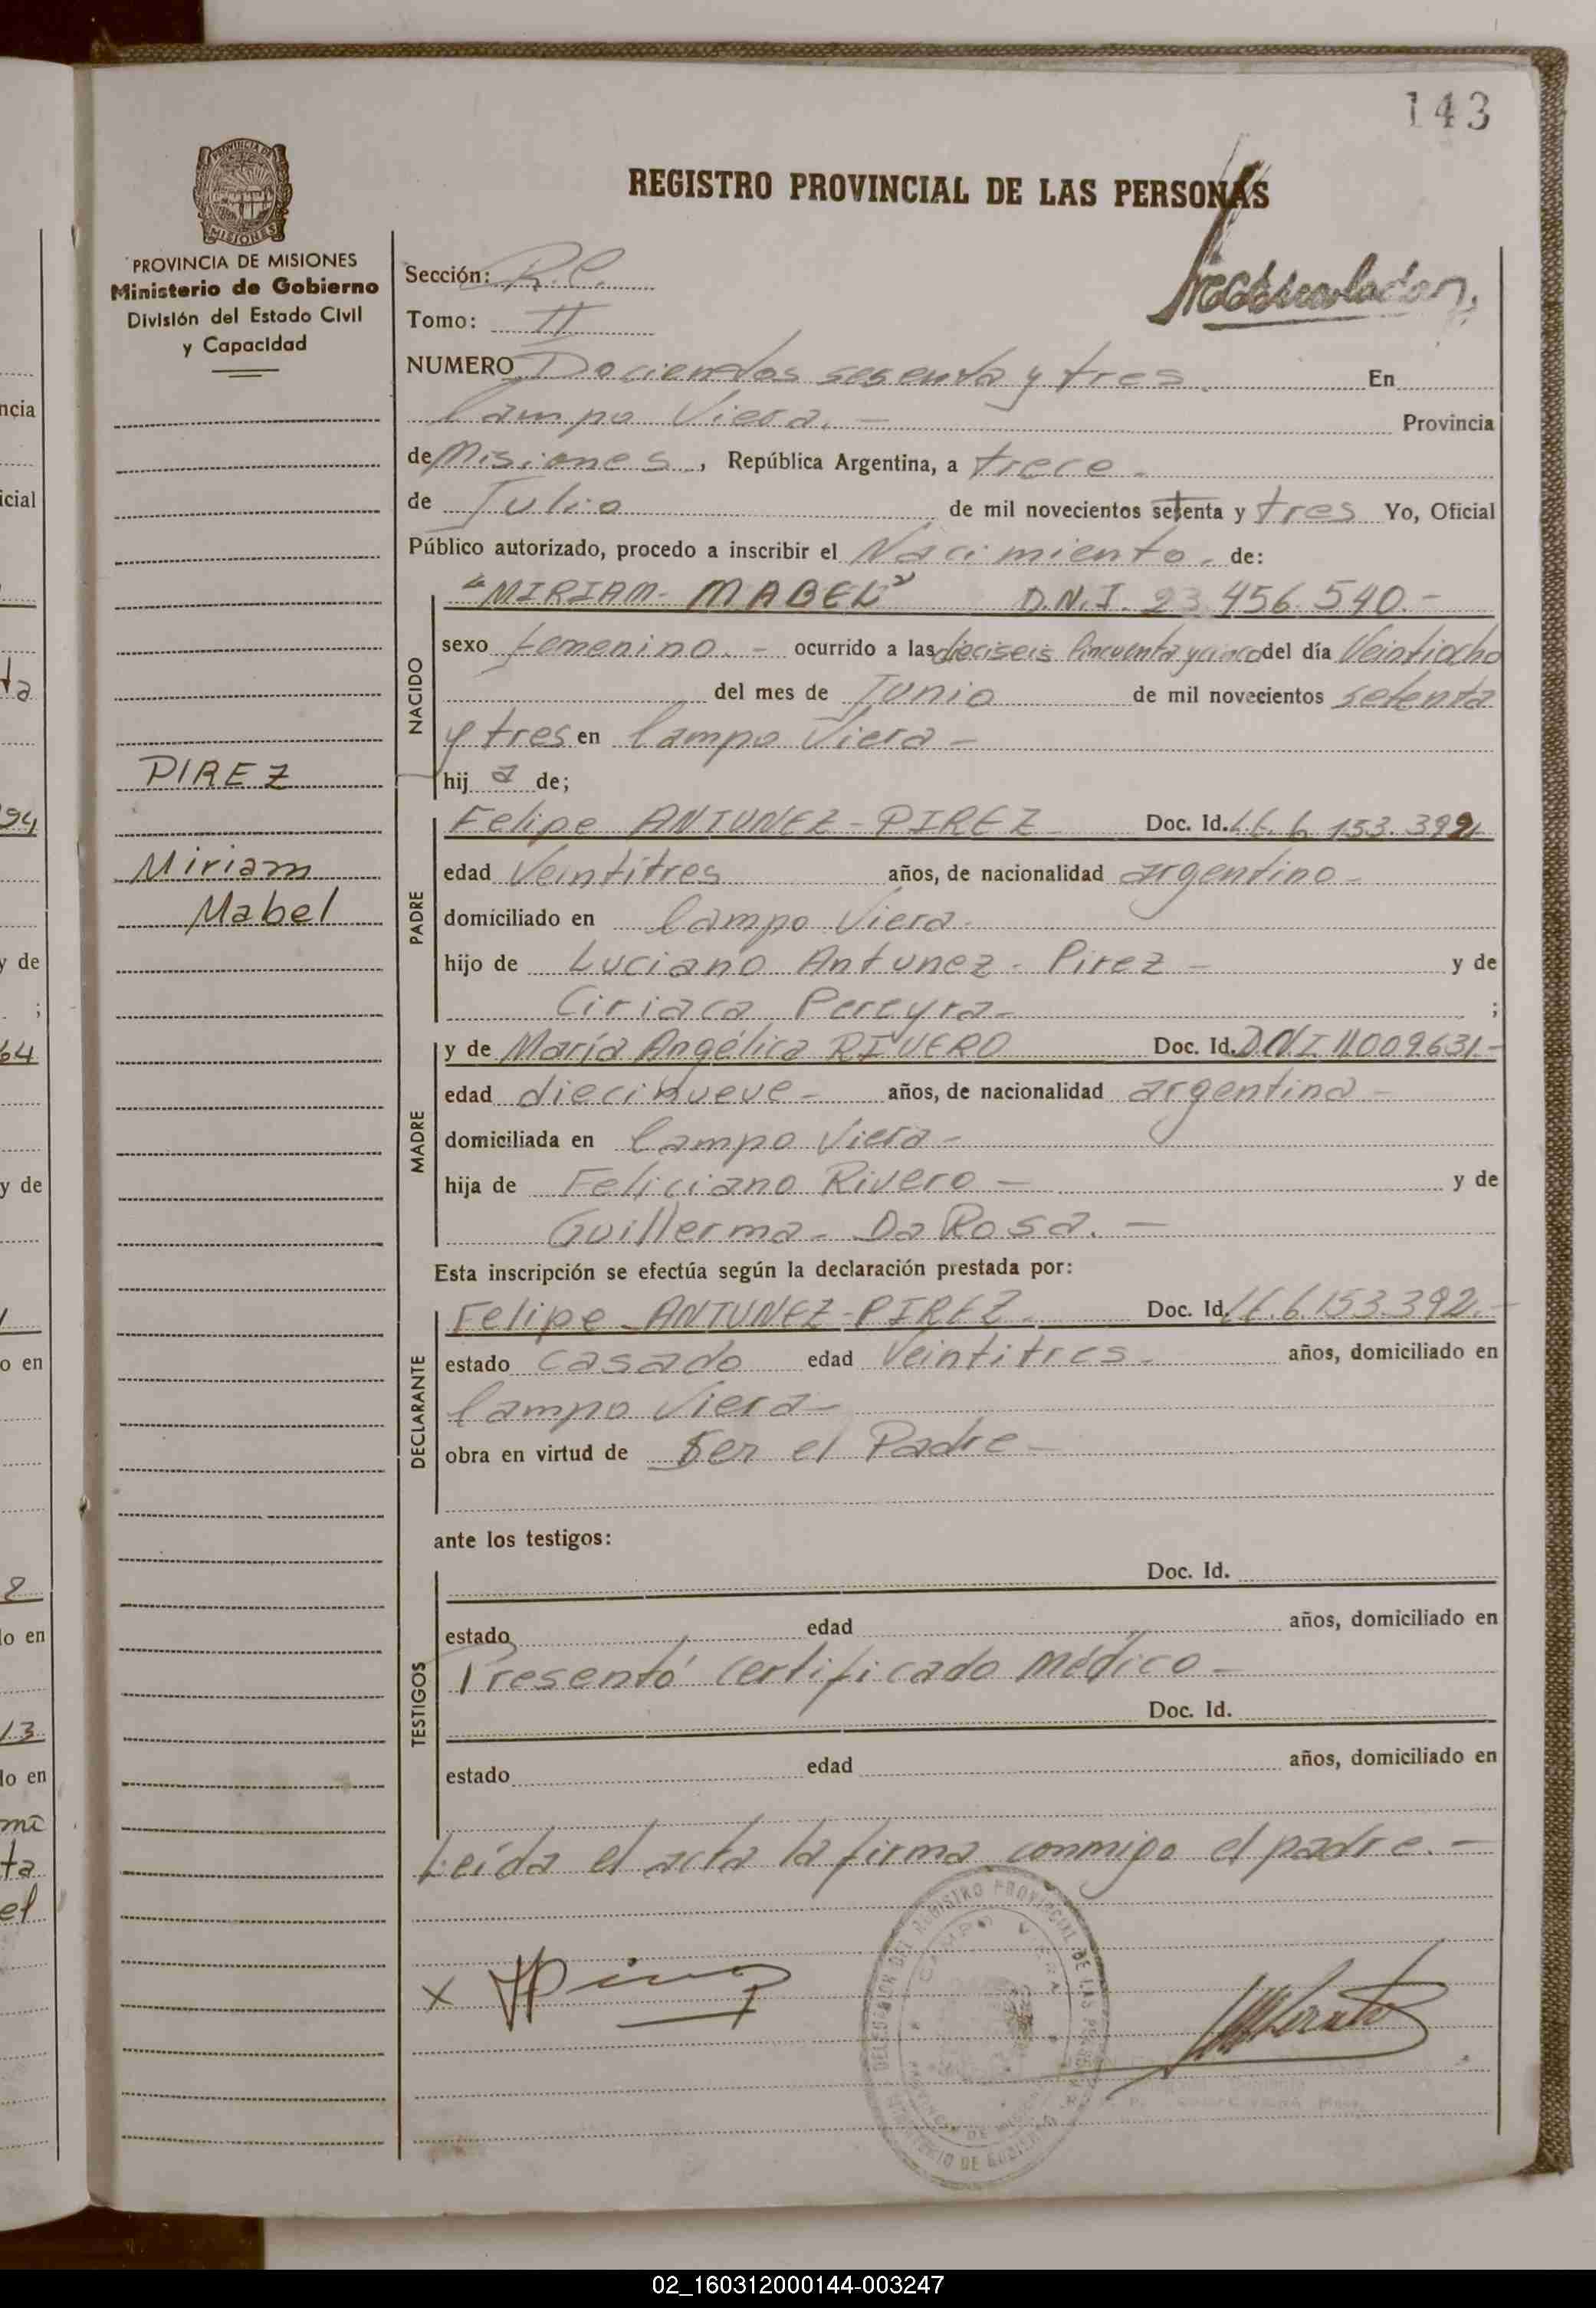 143
REGISTRO PROVINCIAL DE LAS PERSONAS
PROVINCIA DE MISIONES
Ministerio de Gobierno
División del Estado Civil
y Capacidad
PIREZ
Miriam
Mabel
Sección: R.C.
Tomo: II
NUMERO Dociendos sesenta y tres. En
Campo Viera. - Provincia
de Misiones, República Argentina, a trece -
de Julio de mil novecientos setenta y tres Yo, Oficial
Público autorizado, procedo a inscribir el Nacimiento. de:
NACIDO
"MIRIAM- MABEL" D.N.I. 23.456.540.-
sexo femenino. - ocurrido a las dieciseis Cincuenta y cinco del día Veintiocho
del mes de Junio de mil novecientos setenta
y tres en Campo Viera -
hija de;
PADRE
Felipe ANTUNEZ - PIREZ Doc. Id. L.E. 6.153.392
edad Veintitres años, de nacionalidad argentino -
domiciliado en Campo Viera -
hijo de Luciano Antunez - Pirez - y de
Ciriaca Pereyra - ;
MADRE
y de María Angélica RIVERO Doc. Id. D.N.I 11009631.-
edad diecinueve - años, de nacionalidad argentina -
domiciliada en Campo Viera -
hija de Feliciano Rivero - y de
Guillerma - Da Rosa. -
Esta inscripción se efectúa según la declaración prestada por:
DECLARANTE
Felipe ANTUNEZ - PIREZ. Doc. Id. L.E. 6.153.392.-
estado casado edad Veintitres - años, domiciliado en
Campo Viera -
obra en virtud de Ser el Padre -
ante los testigos:
TESTIGOS
Doc. Id.
estado edad años, domiciliado en
Presentó certificado médico -
Doc. Id.
estado edad años, domiciliado en
Leída el acta la firma conmigo el padre. -
x
DEL REGISTRO PROVINCIAL DE LAS
CAMPO VIERA
02_160312000144-003247